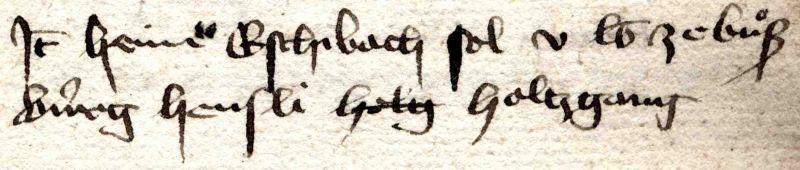 It heine Eschibach sol v lb ze buͦß
bürg hensli holtz holtzgang